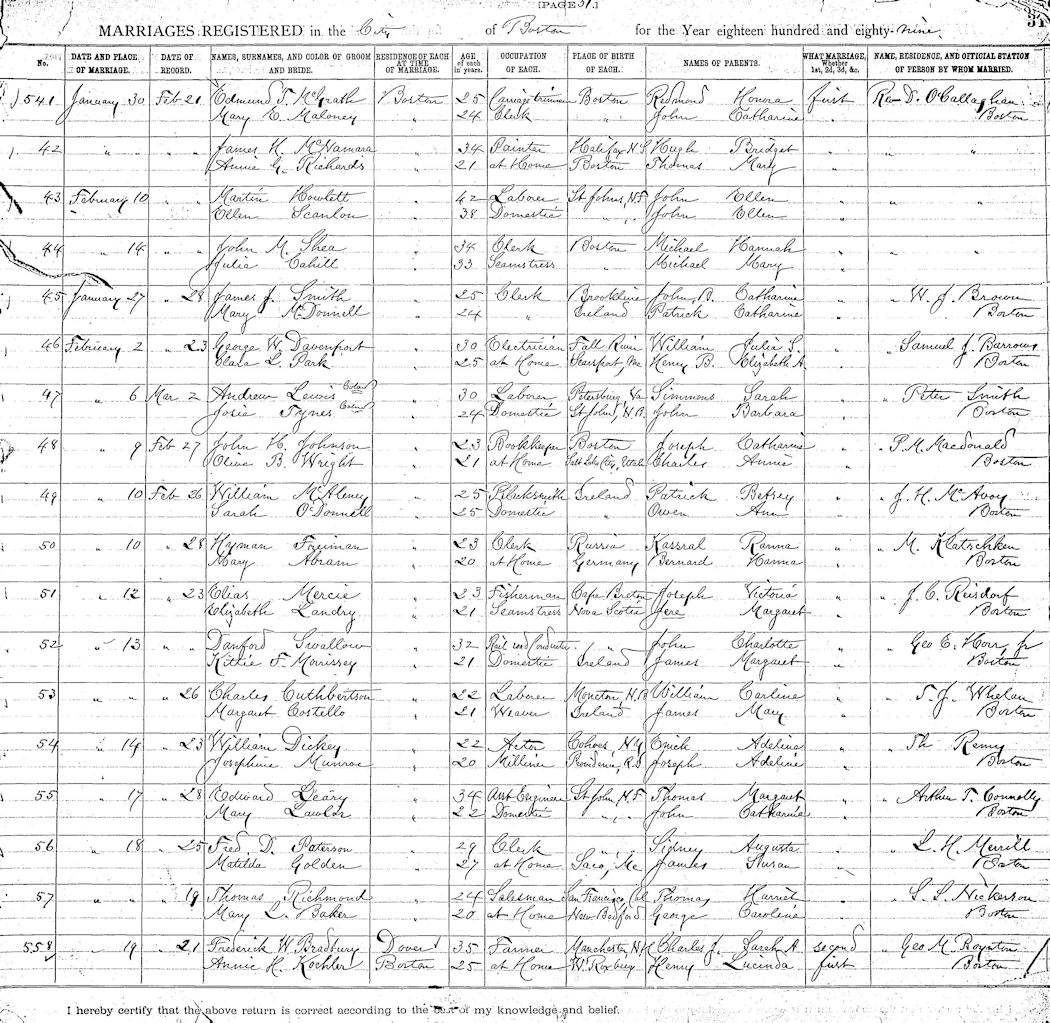 [PAGE 31.]
31
MARRIAGES REGISTERED in the City of Boston for the Year eighteen hundred and eighty-nine.
No. DATE AND PLACE OF MARRIAGE. DATE OF RECORD. NAMES, SURNAMES, AND COLOR OF GROOM AND BRIDE. RESIDENCE OF EACH AT TIME OF MARRIAGE. AGE of each in years. OCCUPATION OF EACH. PLACE OF BIRTH OF EACH. NAMES OF PARENTS. WHAT MARRIAGE, Whether 1st, 2d, 3d, &c. NAME, RESIDENCE, AND OFFICIAL STATION OF PERSON BY WHOM MARRIED.
541 January 30 Feb 21 Edmund T. McGrath Boston 25 Carriage trimmer Boston Redmond Honora first Rev D. O'Callaghan
Mary C. Maloney " 24 Clerk " John Catharine " Boston
42 " " " " James H. McNamara " 34 Painter Halifax N.S. Hugh Bridget " " "
Annie G. Richards " 21 at Home Boston Thomas Mary "
43 February 10 " " Martin Howlett " 42 Laborer St Johns, N.F. John Ellen " " "
Ellen Scanlon " 38 Domestic " " John Ellen "
44 " 14 " " John M. Shea " 34 Clerk Boston Michael Hannah " " "
Julia Cahill " 33 Seamstress " Michael Mary "
45 January 27 " 28 James J. Smith " 25 Clerk Brookline John B. Catharine " " W. J. Brown
Mary McDonnell " 24 " Ireland Patrick Catharine " Boston
46 February 2 " 23 George W. Davenport " 30 Electrician Fall River William Julia S. " " Samuel J. Barrows
Clara L. Park " 25 at Home Searsport, Me Henry B. Elizabeth A. " Boston
47 " 6 Mar 2 Andrew Lewis Colored " 30 Laborer Petersburg, Va Simmons Sarah " " Peter Smith
Josie Tynes Colored " 24 Domestic St John, N.B. John Barbara " Boston
48 " 9 Feb 27 John H. Johnson " 23 Bookkeeper Boston Joseph Catharine " " P. M. Macdonald
Olive B. Wright " 21 at Home Salt Lake City, Utah Charles Annie " Boston
49 " 10 Feb 26 William McAleney " 25 Blacksmith Ireland Patrick Betsey " " J. H. McAvoy
Sarah O'Donnell " 25 Domestic " Owen Ann " Boston
50 " 10 " 28 Hyman Freiman " 23 Clerk Russia Kassral Ranna " " M. Klatschken
Mary Abram " 20 at Home Germany Bernard Hanna " Boston
51 " 12 " 23 Elias Mercie " 23 Fisherman Cape Breton Joseph Victoria " " J. C. Reisdorf
Elizabeth Landry " 21 Seamstress Nova Scotia Jere Margaret " Boston
52 " 13 " " Danford Swallow " 32 Railroad Conductor " " John Charlotte " " Geo E. Horr, Jr
Kittie F. Morrissey " 21 Domestic Ireland James Margaret " Boston
53 " " " 26 Charles Cuthbertson " 22 Laborer Moncton, N.B. William Carline " " T. J. Whelan
Margaret Costello " 21 Weaver Ireland James Mary " Boston
54 " 14 " 23 William Dickey " 22 Actor Cohoes, N.Y. Adeline " " Th Remy
Josephine Munroe " 20 Milliner Providence, R.I. Joseph Adeline " Boston
55 " 17 " 28 Edward Leary " 34 Asst Engineer St John, N.F. Thomas Margaret " " Arthur T. Connolly
Mary Lawlor " 22 Domestic " " John Catharine " Boston
56 " 18 " 25 Fred. D. Paterson " 29 Clerk " " Sidney Augusta " " L. H. Merrill
Matilda Golden " 27 at Home Saco, Me James Susan " Boston
57 " " " 19 Thomas Richmond " 24 Salesman San Francisco, Cal Thomas Harriet " " S. S. Nickerson
Mary L. Baker " 20 at Home New Bedford George Caroline " Boston
558 " 19 " 21 Frederick W. Bradbury Dover 35 Farmer Manchester N.H. Charles J. Sarah A. second " Geo M. Boynton
Annie H. Koehler Boston 25 at Home W. Roxbury Henry Lucinda first Boston
I hereby certify that the above return is correct according to the best of my knowledge and belief.